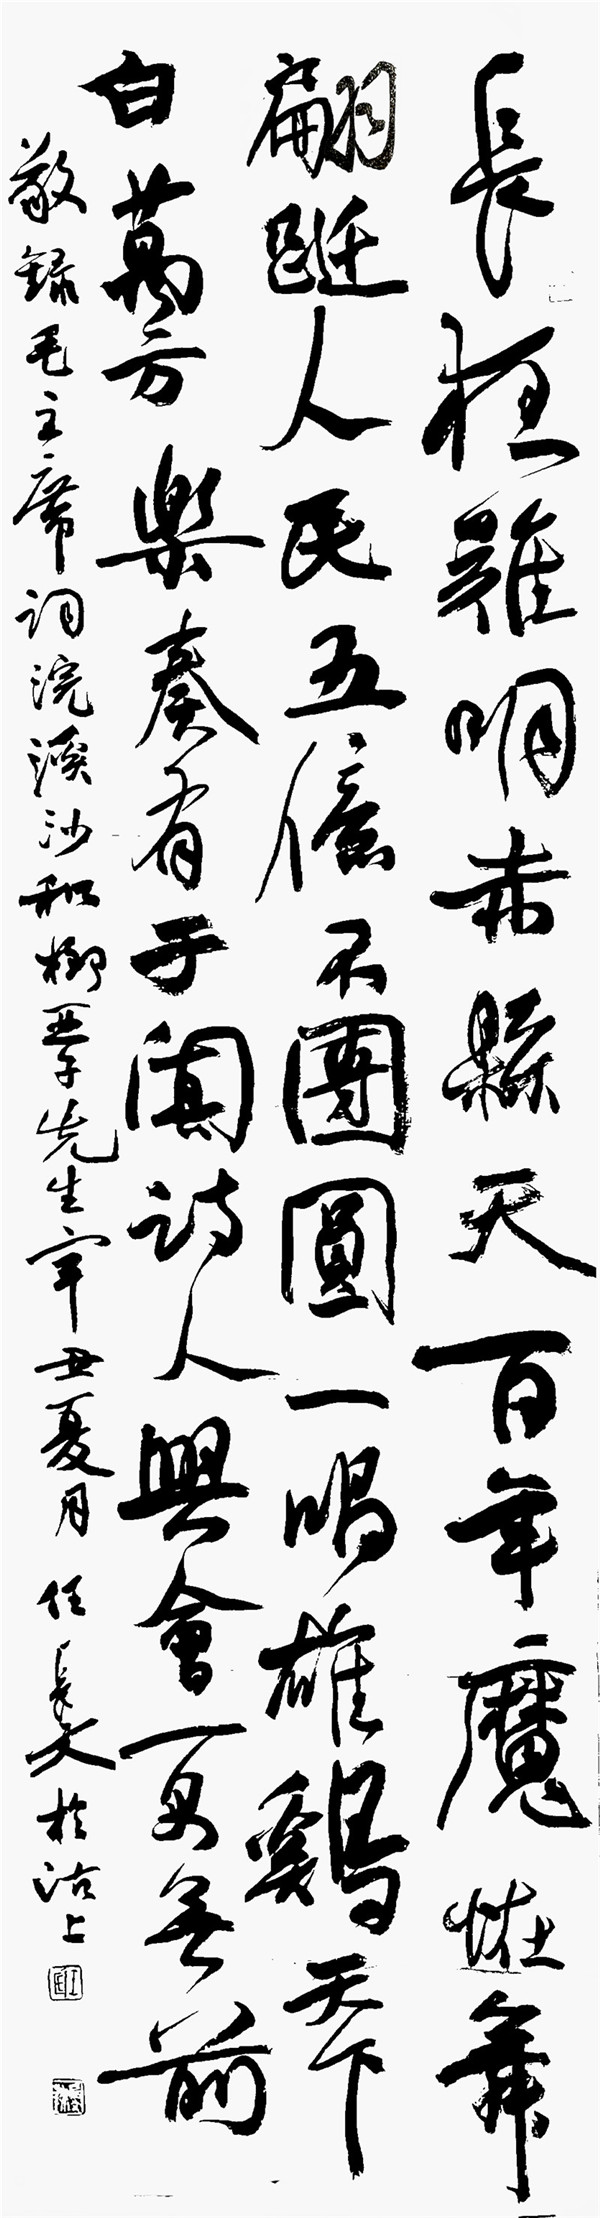 長夜難明赤縣天百年魔怪舞
翩跹人民五億不團圓一唱雄鷄天下
白萬方樂奏有于闐詩人興會更無前
敬録毛主席詞浣溪沙和柳亞子先生辛丑夏月任長文於沽上